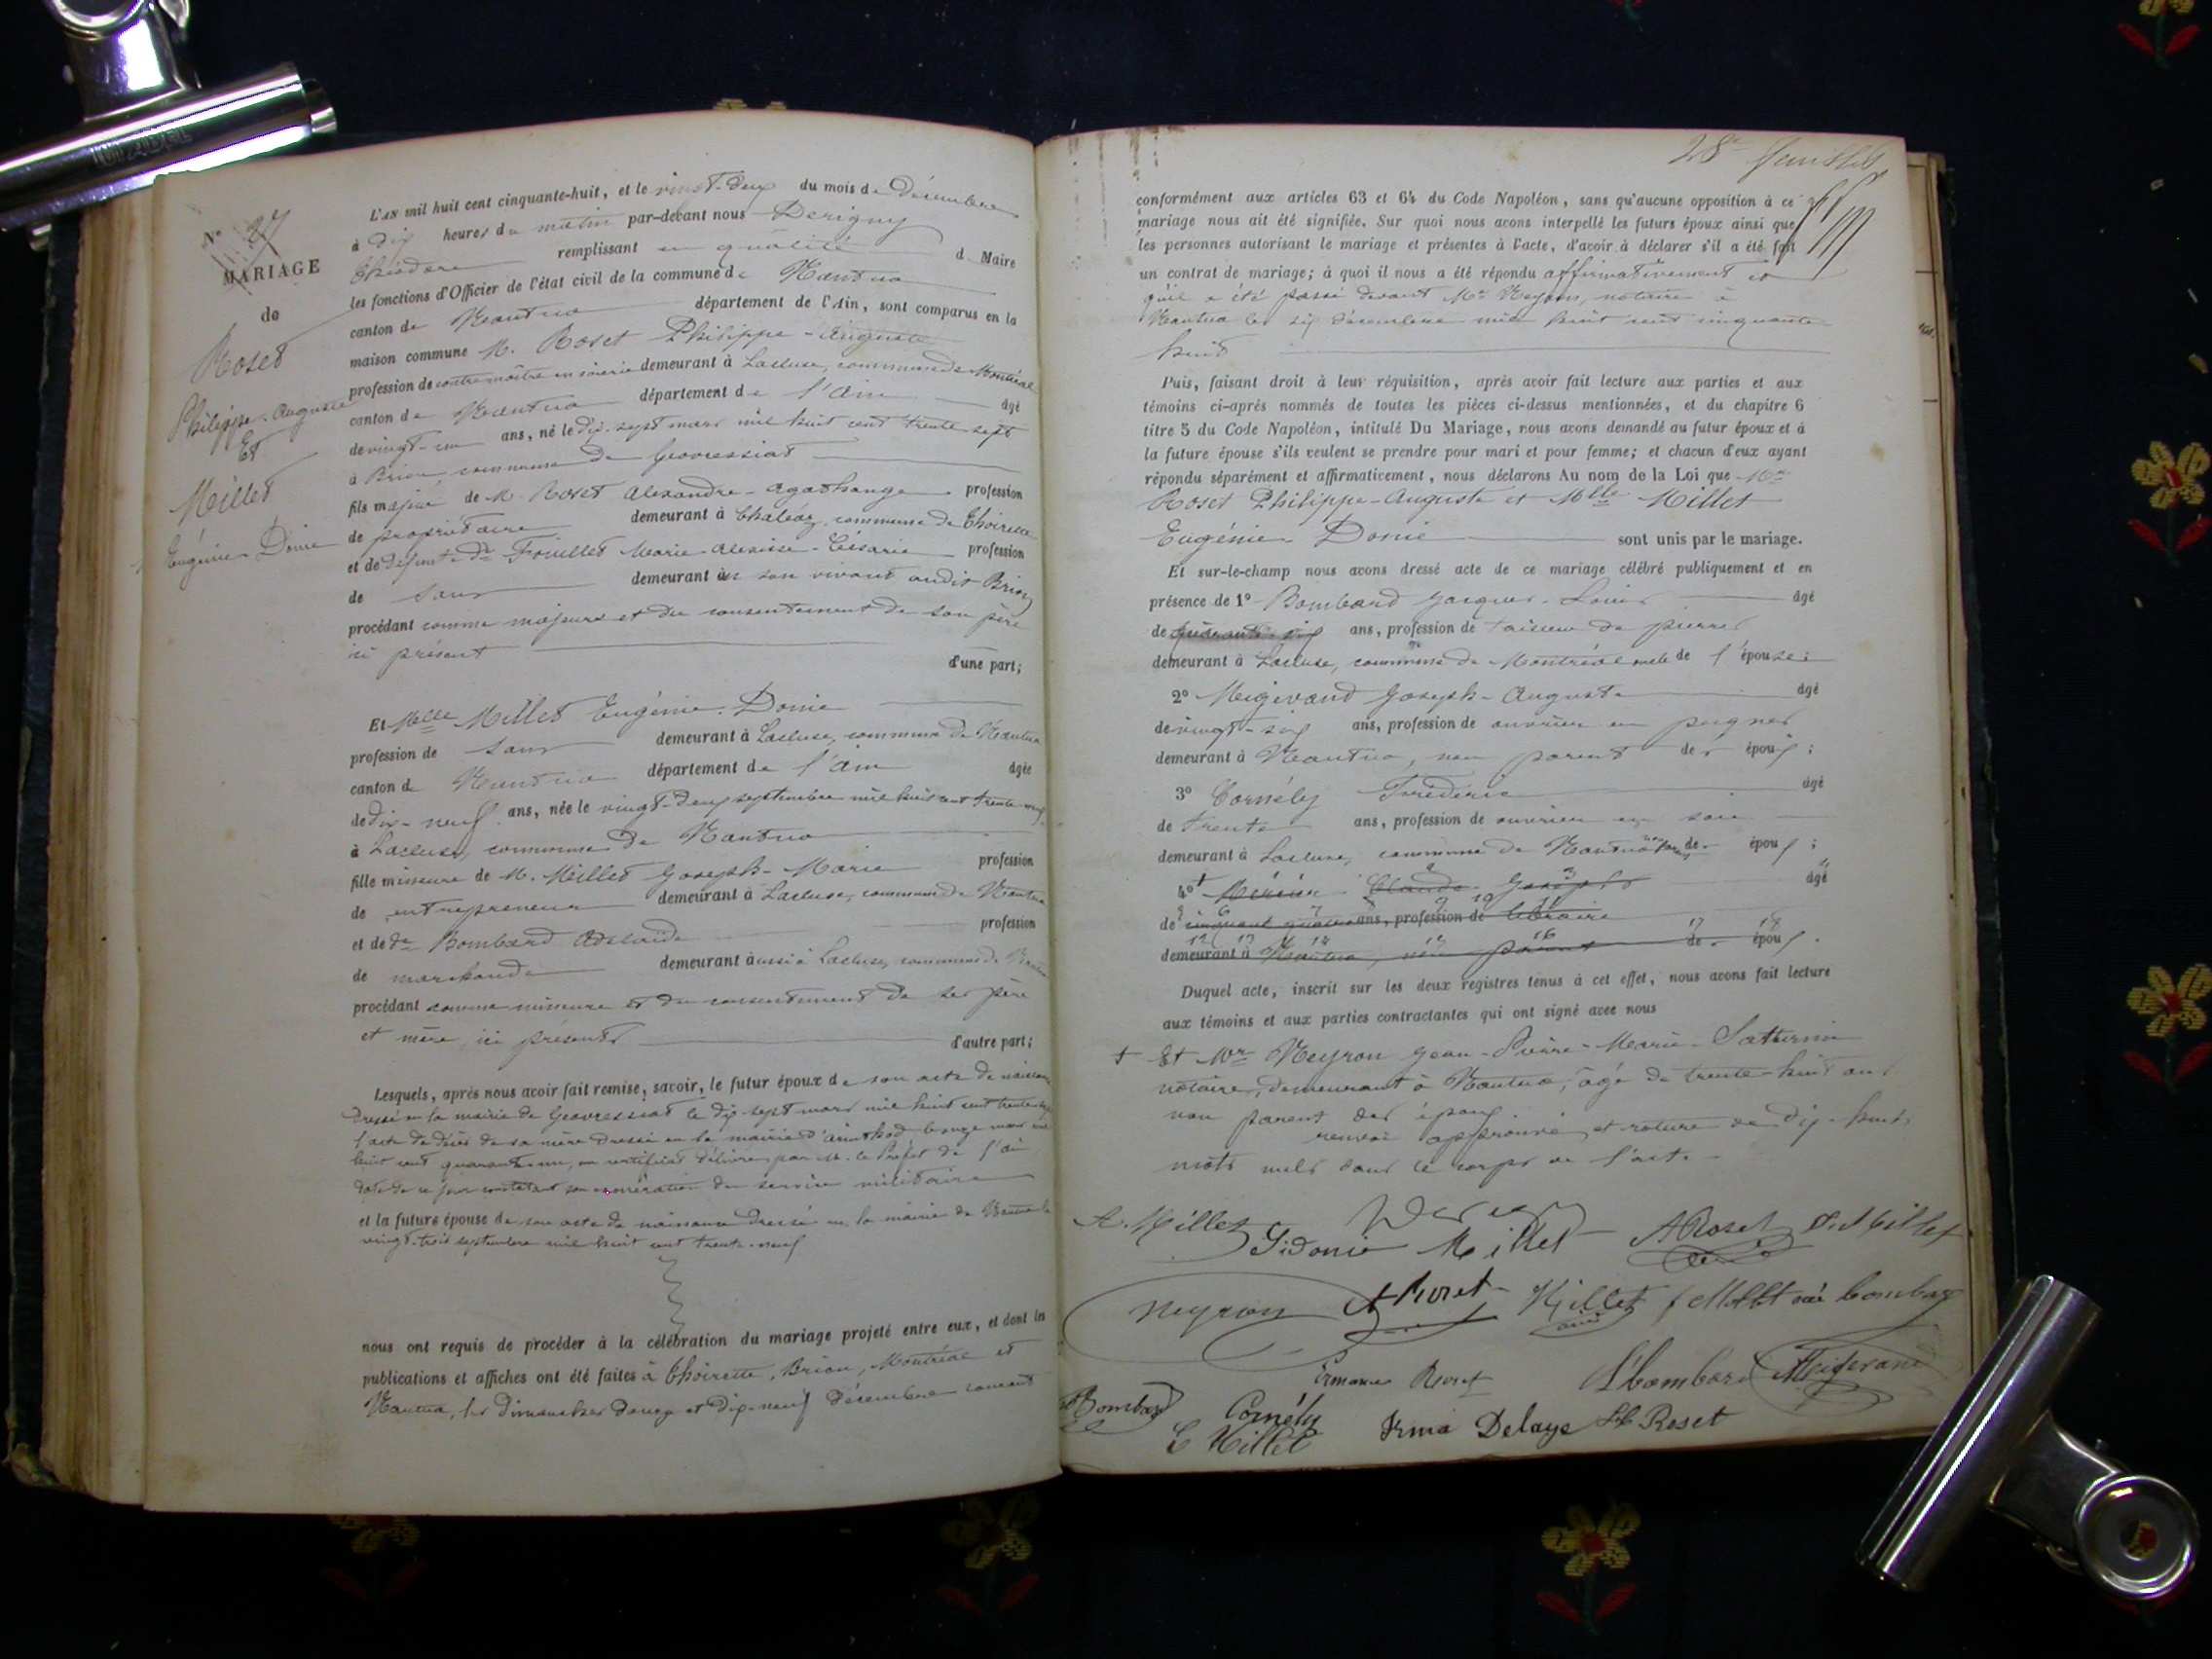 N° 27
MARIAGE
de
Roset
Philippe-Auguste
Et
Millet
Eugénie-Donie
L'an mil huit cent cinquante-huit, et le vingt-deux du mois de Décembre
à dix heures du matin par-devant nous Derigny
Théodore remplissant en qualité d Maire
les fonctions d'Officier de l'état civil de la commune de Nantua
canton de Nantua département de l'Ain, sont comparus en la
maison commune M. Roset Philippe-Auguste
profession de contremaître en soierie demeurant à Lacluse, commune de Montréal
canton de Nantua département de l'Ain âgé
de vingt-un ans, né le dix-sept mars mil huit cent trente sept
à Brion, commune de Geovressiat
fils majeur de M. Roset Alexandre-Agathange profession
de propriétaire demeurant à Chaléaz, commune de Thoirette
et de défunte De Fouillet Marie-Césarie profession
de sans demeurant en son vivant audit Brion
procédant comme majeur et du consentement de son père
ici présent
d'une part;
Et Melle Millet Eugénie-Donie
profession de sans demeurant à Lacluse, commune de Nantua
canton de Nantua département de l'Ain âgée
de dix-neuf ans, née le vingt-deux septembre mil huit cent trente-neuf
à Lacluse, commune de Nantua
fille mineure de M. Millet Joseph-Marie profession
de entrepreneur demeurant à Lacluse, commune de Nantua
et de De Bombard Adelaïde profession
de marchande demeurant aussi à Lacluse, commune de Nantua
procédant comme mineure et du consentement de ses père
et mère, ici présents d'autre part;
Lesquels, après nous avoir fait remise, savoir, le futur époux de son acte de naissance
dressé en la mairie de Geovressiat le dix-sept mars mil huit cent trente-sept
l'acte de décès de sa mère dressé en la mairie d'Arinthod le onze mars mil
huit cent quarante-un, un certificat délivré par M. le Préfet de l'Ain
date de ce jour constatant son exonération du service militaire
et la future épouse de son acte de naissance dressé en la mairie de Nantua le
vingt-trois septembre mil huit cent trente-neuf
nous ont requis de procéder à la célébration du mariage projeté entre eux, et dont les
publications et affiches ont été faites à Thoirette, Brion, Montréal et
Nantua, les dimanches douze et dix-neuf décembre courant
28e feuillet
conformément aux articles 63 et 64 du Code Napoléon, sans qu'aucune opposition à ce
mariage nous ait été signifiée. Sur quoi nous avons interpellé les futurs époux ainsi que
les personnes autorisant le mariage et présentes à l'acte, d'avoir à déclarer s'il a été fait
un contrat de mariage; à quoi il nous a été répondu affirmativement et
qu'il a été passé devant Me Neyron, notaire à
Nantua les six décembre mil huit cent cinquante
huit
Puis, faisant droit à leur réquisition, après avoir fait lecture aux parties et aux
témoins ci-après nommés de toutes les pièces ci-dessus mentionnées, et du chapitre 6
titre 5 du Code Napoléon, intitulé Du Mariage, nous avons demandé au futur époux et à
la future épouse s'ils veulent se prendre pour mari et pour femme; et chacun d'eux ayant
répondu séparément et affirmativement, nous déclarons Au nom de la Loi que Mr
Roset Philippe-Auguste et Mlle Millet
Eugénie Donie sont unis par le mariage.
Et sur-le-champ nous avons dressé acte de ce mariage célébré publiquement et en
présence de 1° Bombard Jacques-Louis âgé
de quarante-six ans, profession de tailleur de pierres
demeurant à Lacluse, commune de Montréal oncle de l'épouse;
2° Migevand Joseph-Auguste âgé
de vingt-six ans, profession de ouvrier en peignes
demeurant à Nantua, non parent des époux;
3° Cornély Frédéric âgé
de trente ans, profession de ouvrier en soie
demeurant à Lacluse, commune de Nantua non parent des époux;
4° Claude Joseph âgé
de cinquante quatre ans, profession de libraire
demeurant à Nantua, non parent des époux.
Duquel acte, inscrit sur les deux registres tenus à cet effet, nous avons fait lecture
aux témoins et aux parties contractantes qui ont signé avec nous
+ Et Mr Neyron Jean-Pierre-Marie-Saturnin
notaire, demeurant à Nantua, âgé de trente-huit ans
non parent des époux.
renvoi approuvé et rature de dix-huit
mots nuls dans le corps de l'acte.
A. Millet
Sidonie Millet ARoset D. Millet
Neyron A Roset Millet f Millet née bombard
Ermance Roset L bombard Migevand
Bombard Cornély Irma Delaye Roset
E Millet